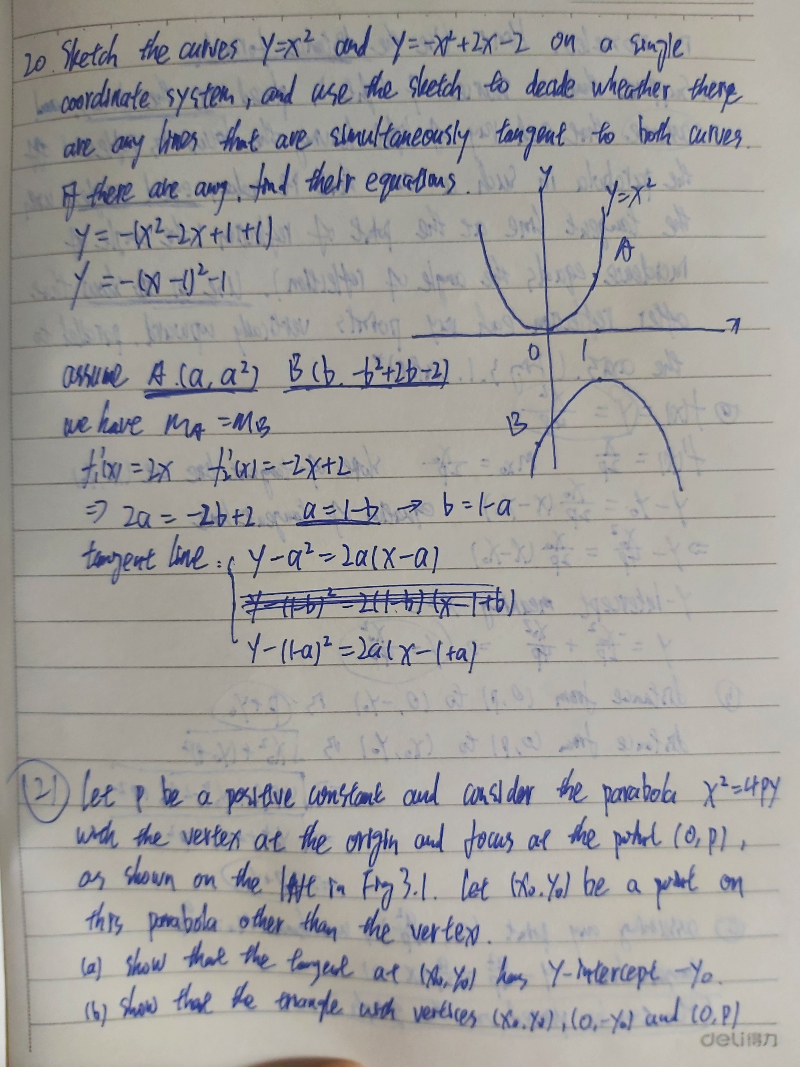 20. Sketch the curves y=x² and y=-x²+2x-2 on a single
coordinate system, and use the sketch to decade wheather there
are any lines that are simultaneously tangent to both curves.
If there are any, find their equations.
y
y=x²
A
x
0
1
B
y=-(x²-2x+1+1)
y=-(x-1)²-1
assume A.(a, a²) B(b. -b²+2b-2)
we have mA=mB
f₁'(x)=2x f₂'(x)=-2x+2
⇒ 2a=-2b+2 a=1-b → b=1-a
tangent line: y-a²=2a(x-a)
y-(1-b)²=2(1-b)(x-1+b)
y-(1-a)²=2a(x-1+a)
(21) Let p be a positive constant and consider the parabola x²=4py
with the vertex at the origin and focus at the point (0,p),
as shown on the left in Fig 3.1. Let (x₀.y₀) be a point on
this parabola other than the vertex.
(a) show that the tangent at (x₀,y₀) has y-intercept -y₀.
(b) show that the triangle with vertices (x₀.y₀), (0,-y₀) and (0,p)
deli得力